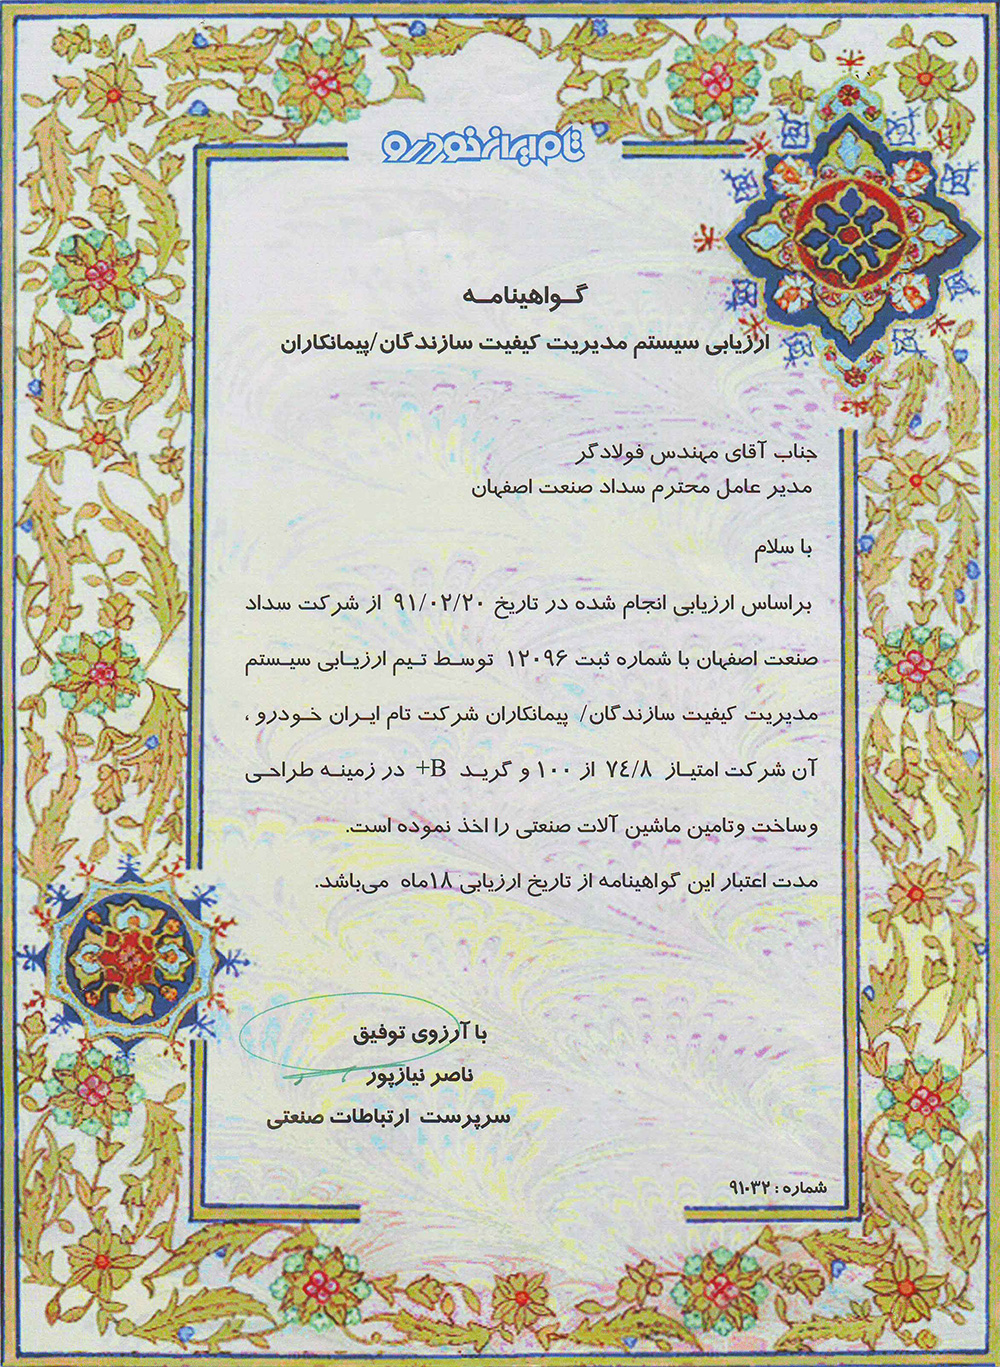 تام ایران خودرو
گـواهینامـه
ارزیابی سیستم مدیریت کیفیت سازندگان/پیمانکاران
جناب آقای مهندس فولادگر
مدیر عامل محترم سداد صنعت اصفهان
با سلام
براساس ارزیابی انجام شده در تاریخ ۹۱/۰۲/۲۰ از شرکت سداد
صنعت اصفهان با شماره ثبت ۱۲۰۹۶ توسط تیم ارزیابی سیستم
مدیریت کیفیت سازندگان/ پیمانکاران شرکت تام ایران خودرو ،
آن شرکت امتیاز ۷٤/۸ از ۱۰۰ و گرید B+ در زمینه طراحی
وساخت وتامین ماشین آلات صنعتی را اخذ نموده است.
مدت اعتبار این گواهینامه از تاریخ ارزیابی ۱۸ماه می‌باشد.
با آرزوی توفیق
ناصر نیازپور
سرپرست ارتباطات صنعتی
شماره : ۹۱۰۳۲